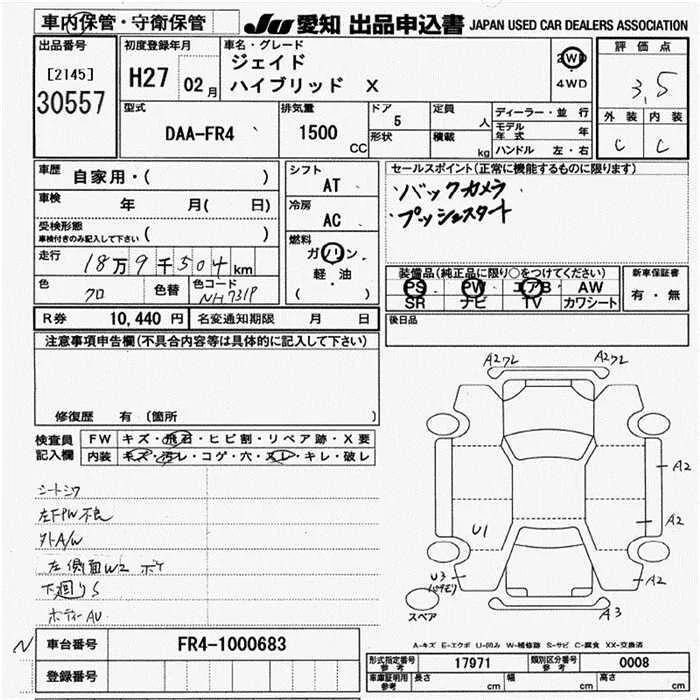 車内保管・守衛保管
JU 愛知 出品申込書 JAPAN USED CAR DEALERS ASSOCIATION
出品番号
[2145]
30557
初度登録年月
H27 02月
車名・グレード
ジェイド
ハイブリッド X
2WD
4WD
評価点
3.5
外装 内装
C C
型式
DAA-FR4
排気量
1500
CC
ドア
5
形状
定員
人
積載
kg
ディーラー・並行
モデル年式 年
ハンドル 左・右
車歴
自家用・( )
車検
年 月( 日)
受検形態
車検付きのみ記入して下さい ( )
走行
18万9千504km
色
クロ
色替
色コード
NH731P
シフト
AT
冷房
AC
燃料
ガソリン
軽・油
( )
セールスポイント(正常に機能するものに限ります)
・バックカメラ
・プッシュスタート
装備品(純正品に限り○をつけてください)
PS PW エアB AW
SR ナビ TV カワシート
新車保証書
有・無
後日品
R券 10,440 円 名変通知期限 月 日
注意事項申告欄(不具合内容等は具体的に記入して下さい)
修復歴 有 (箇所 )
検査員
記入欄
FW キズ・飛石・ヒビ割・リペア跡・X要
内装 キズ・汚レ・コゲ・穴・スレ・キレ・破レ
シートシワ
左FPW不良
外A/W
左側面W2 ボケ
下廻りS
ボディーAU
A2フレ A2フレ
A2
A2
A2
A3
U1
U3
スペア
A-キズ E-エクボ U-凹み W-補修跡 S-サビ C-腐食 XX-交換済
N
車台番号
FR4-1000683
登録番号
形式指定番号
参考
17971
類別区分番号
参考
0008
車庫証明用
参考
長さ cm 幅 cm 高さ cm